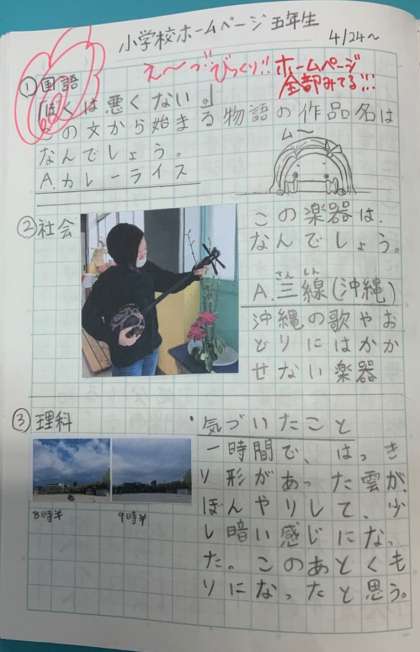 小学校ホームページ五年生
4/24〜
え〜っ!びっくり!!ホームページ
全部みてる!!!
①国語
「ぼくは悪くない。」
この文から始まる物語の作品名は
なんでしょう。
A.カレーライス
ム〜
②社会
この楽器は、
なんでしょう。
A.三線(沖縄)
さんしん
沖縄の歌やお
どりにはかか
せない楽器
③理科
8時半
9時半
・気づいたこと
一時間で、はっき
り形があった雲が、
ぼんやりして、少
し暗い感じになっ
た。このあとくも
りになったと思う。